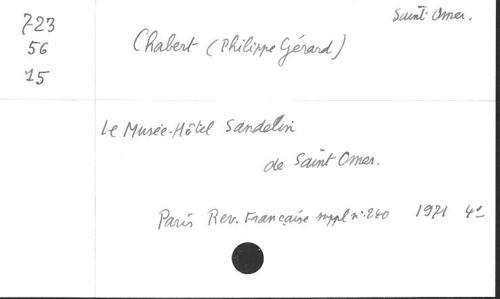 Saint Omer.
723
56
15
Chabert (Philippe Gérard)
Le Musée-Hôtel Sandelin
de Saint Omer.
Paris Rev. Française suppl n°.240 1971 4°